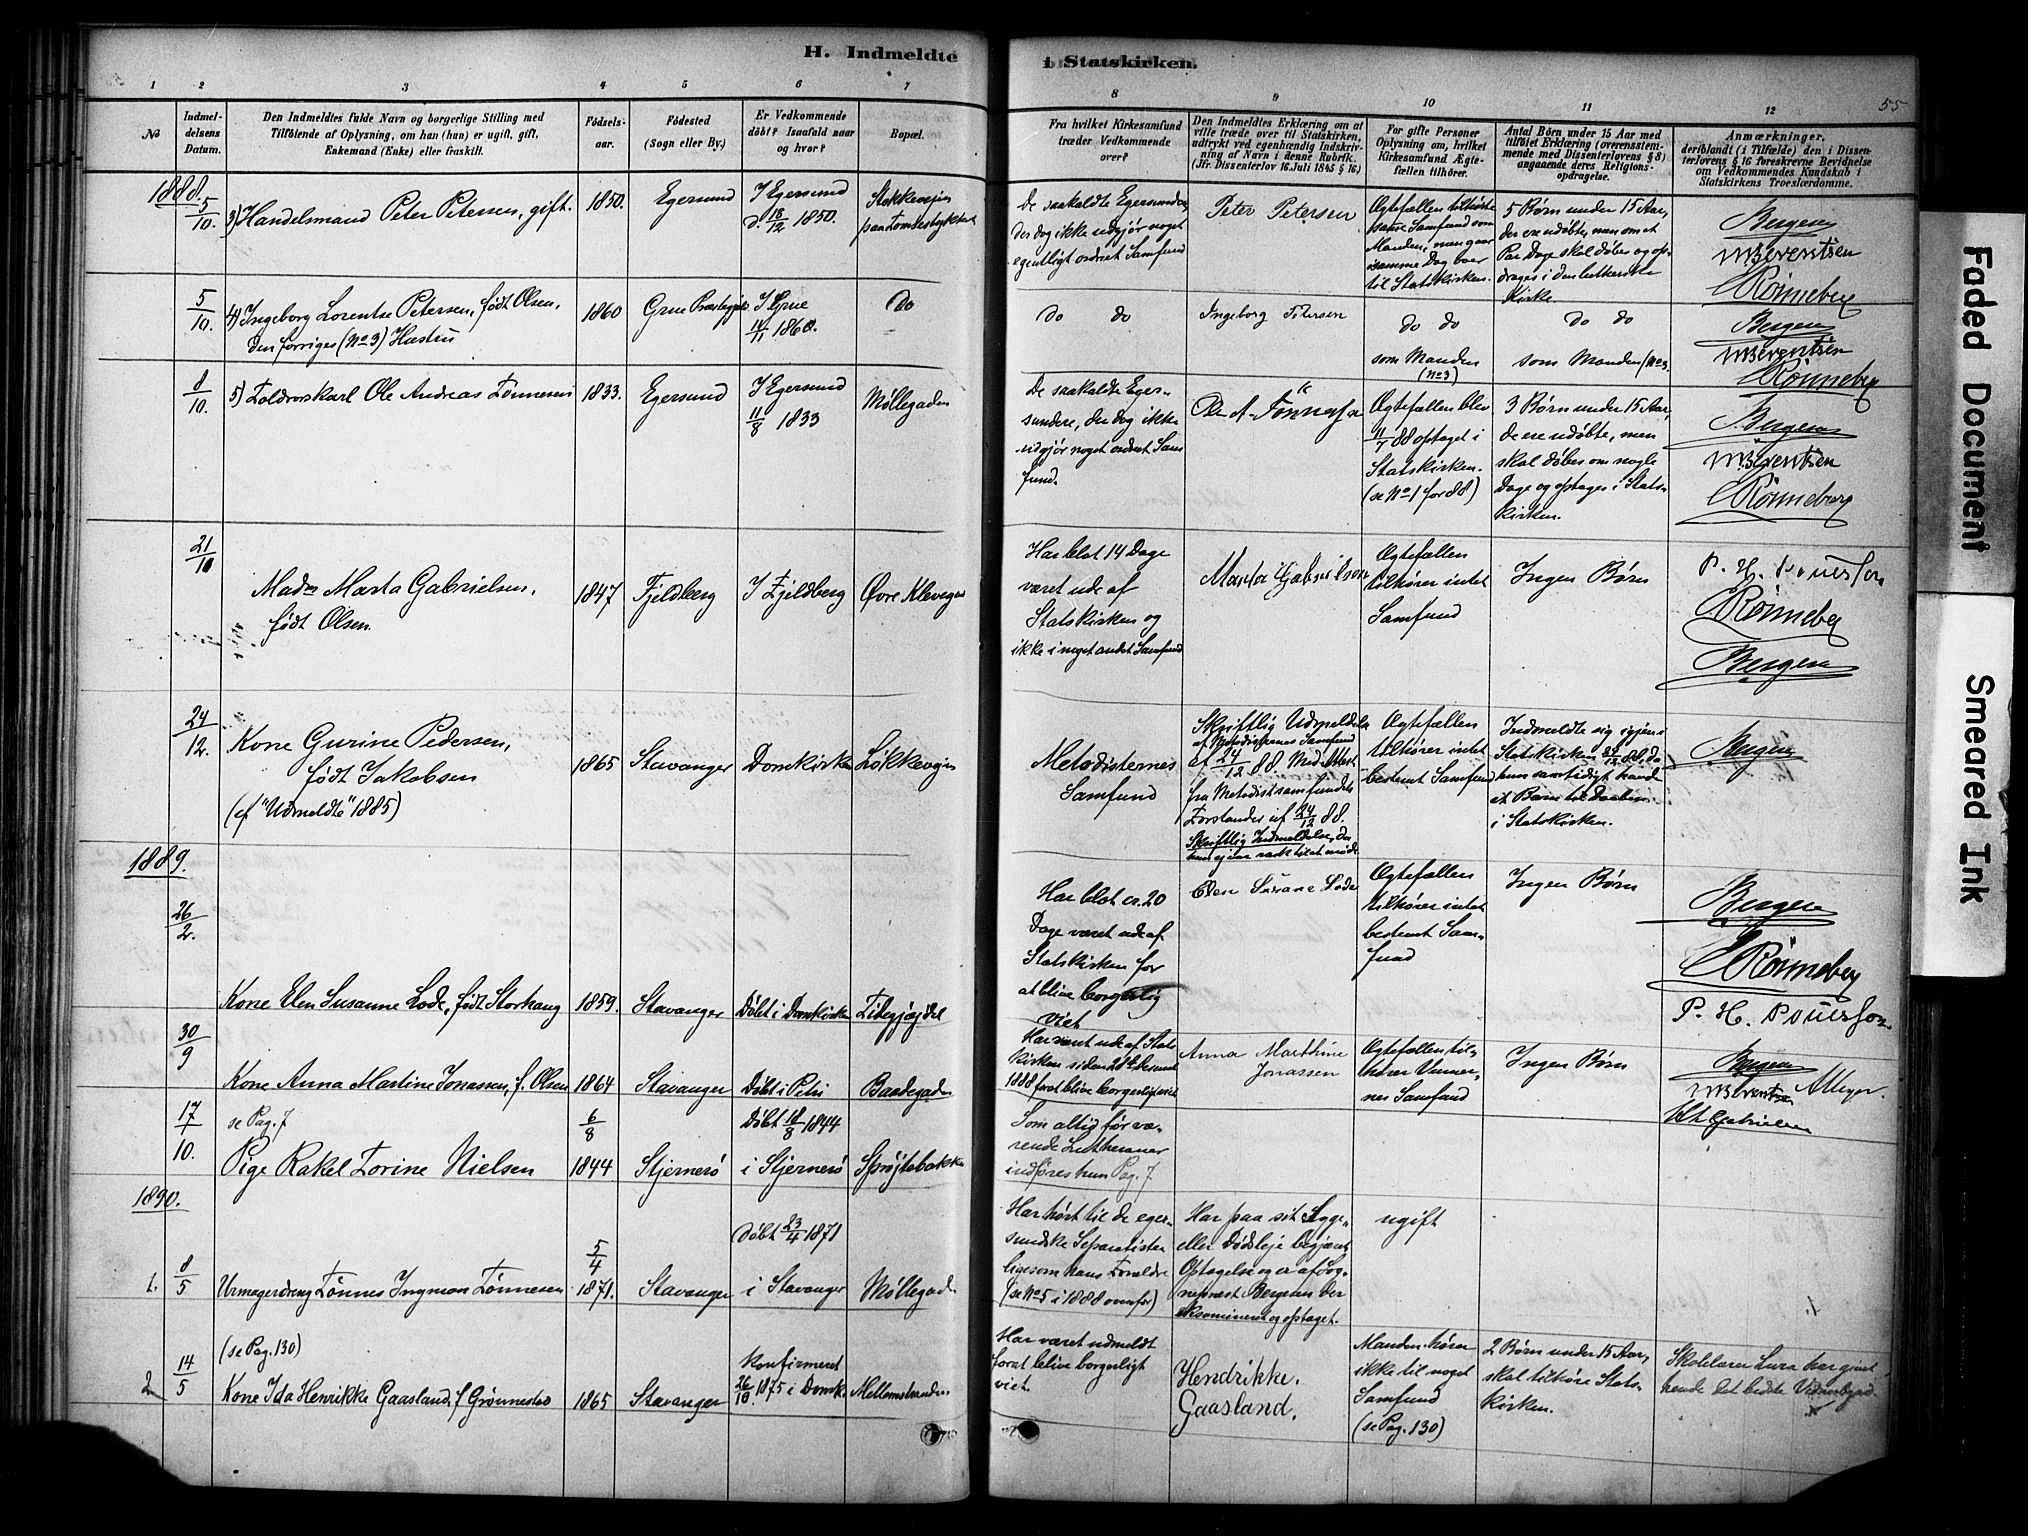 H. Indmeldte i Statskirken.
55
1 2 3 4 5 6 7 8 9 10 11 12
No
Indmel-
delsens
Datum.
Den Indmeldtes fulde Navn og borgerlige Stilling med
Tilföiende af Oplysning, om han (hun) er ugift, gift,
Enkemand (Enke) eller fraskilt.
Födsels-
aar.
Födested
(Sogn eller By.)
Er Vedkommende
döbt? Isaafald naar
og hvor?
Bopæl.
Fra hvilket Kirkesamfund
træder Vedkommende
over?
Den Indmeldtes Erklæring om at
ville træde over til Statskirken,
udtrykt ved egenhændig Indskriv-
ning af Navn i denne Rubrik.
(Jfr. Dissenterlov 16. Juli 1845 § 16)
For gifte Personer
Oplysning om, hvilket
Kirkesamfund Ægte-
fællen tilhörer.
Antal Börn under 15 Aar med
tilföiet Erklæring (overensstem-
mende med Dissenterlovens § 8)
angaaende deres Religions-
opdragelse.
Anmærkninger,
deriblandt (i Tilfælde) den i Dissen-
terlovens § 16 foreskrevne Bevidnelse
om Vedkommendes Kundskab i
Statskirkens Troeslærdomme.
1888.
5/10.
3) Handelsmand Peter Petersen, gift.
1850.
Egersund
I Egersund
d. 18/12 1850.
Stokkeveien
paa Tomtestykket
De saakaldte Egersundere,
der dog ikke udgjør noget
egentligt ordnet Samfund
Peter Petersen
Ægtefællen tilhørte
samme Samfund som
Manden, men gaar
i samme Dag over
til Statskirken.
5 Børn under 15 Aar,
der ere udøbte, men om et
Par Dage skal døbes og op-
drages i den lutherske
Kirke.
Bergen
M Sivertsen
Rönneberg
5/10.
4) Ingeborg Lorentse Petersen, født Olsen,
den forriges (No 3) Hustru
1860
Grue Præstegjeld
I Grue
11/11 1860.
do
do do
Ingeborg Petersen
do do
som Manden
(No 3)
do do
som Manden (No 3
Bergen
M Sivertsen
Rönneberg
8/10.
5) Toldvoskarl Ole Andreas Tönnesen
1833.
Egersund
I Egersund
11/8 1833
Møllegaden
De saakaldte Eger-
sundere, der dog ikke
udgjør noget ordnet Sam
fund.
Ole A. Tönnesen
Ægtefællen blev
11/7 88 optaget i
Statskirken.
(se No 1 for 88)
3 Børn under 15 Aar,
de ere udøbte, men
skal døbes om nogle
Dage og optages i Stats-
kirken.
Bergen
M Sivertsen
Rönneberg
21/10
Madm Marta Gabrielsen,
født Olsen.
1847
Fjeldberg
I Fjeldberg
Øvre Klevegade
Har blot 14 Dage
været ude af
Statskirken og
ikke i noget andet Samfund
Marta Gabrielsen
Ægtefællen
tilhører intet
Samfund
Ingen Børn
P. H. Pouelsen
Rönneberg
Bergen
24/12.
Kone Gurine Pedersen,
født Jakobsen
(cf. "Udmeldte" 1885)
1865
Stavanger
Domkirken
Løkkeveien
Metodisternes
Samfund
Skriftlig Udmeldelse
af Metodisternes Samfund
af 24/12 88. Med Attest
fra Metodistsamfundets
Forstander af 24/12 88.
Skriftlig Indmeldelse, da
hun ej var rask til at møde
Ægtefællen
tilhører intet
bestemt Samfund
Indmeldte sig igjen i
Statskirken 24/12 88, da
hun samtidigt havde
et Barn til Daaben
i Statskirken.
Bergen
1889.
26/2.
Kone Elen Susanne Lode, født Storhaug
1859.
Stavanger
Døbt i Domkirken
Tidegjøjdel
Har blot ca. 20
Dage været ude af
Statskirken for
at blive borgerlig
viet
Elen Susane Lode
Ægtefællen
tilhører intet
bestemt Sam-
fund
Ingen Børn
Bergen
Rönneberg
P. H. Pouelsen
30/9
Kone Anna Martine Jonassen, f. Olsen
1864
Stavanger
Døbt i Petri
Baadegaden
Har været ude af Stats
kirken siden 21de Desemb
1888 for at blive borgerlig viet
Anna Marthine
Jonassen
Ægtefællen til-
hører Venner-
nes Samfund
Ingen Børn
Bergen
M Sivertsen A Meyer.
Gabrielsen
17/10.
se Pag. 7
Pige Rakel Torine Nielsen
6/8
1844
Stjernerö
Døbt 18/8 1844
i Stjernerö
Sprøjtebakken
Som altid før væ-
rende Lutheraner
indføres hun Pag. 7
1890.
1. 8/5
Urmagerdreng Tönnes Ingman Tönnesen
5/4
1871.
Stavanger
Døbt 23/4 1871
i Stavanger
Møllegad.
Har hørt til de eger-
sundske Separatister
ligesom hans Forældre
(se No 5 i 1888 ovenfor)
Har paa sit Syge-
eller Dødsleje begjært
Optagelse og er af Sog-
nepræst Bergem der
eksamineret og optaget.
ugift
2 14/5
(se Pag. 130)
Kone Ida Henrikke Gaasland, f. Grönnestad
1865
Stavanger
Konfirmeret
26/10. 1875 i Domk.
Mellemstraden
Har været udmeldt
for at blive borgerligt
viet
Hendrikke.
Gaasland.
Manden hører
ikke til noget
Samfund
(se Pag. 130)
2 Børn under 15 Aar,
skal tilhøre Stats-
kirken.
Skolelærer Lura har givet
hende det bedste Vidnesbyrd.
Faded Document
Smeared Ink